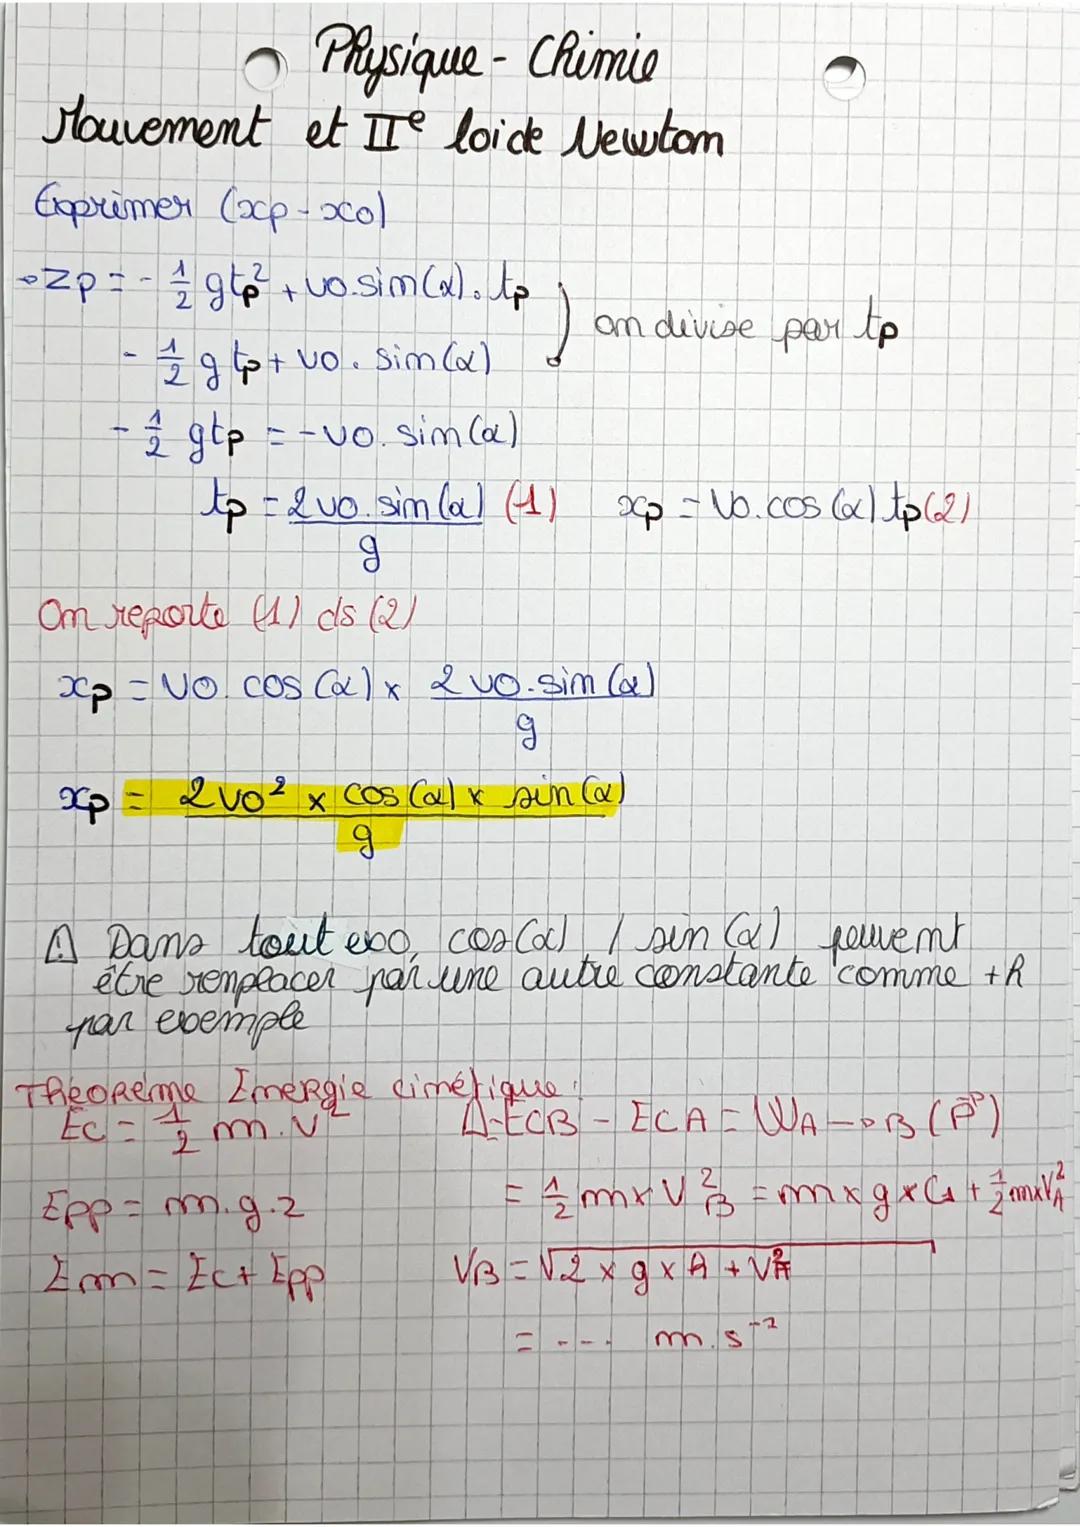 Physique - Chimie
Mouvement et IIe loi de Newton
Exprimer (xp - x0)
→ zp = - 1/2 gtp² + v0.sin(α). tp
on divise par tp
- 1/2 g tp + v0. sin(α)
- 1/2 gtp = - v0. sin(α)
tp = 2v0.sin(α)/g (1) xp = V0.cos(α) tp (2)
On reporte (1) ds (2)
xp = v0. cos(α) x 2v0.sin(α)/g
xp = 2v0² x cos(α) x sin(α)/g
⚠ Dans tout exo, cos(α) / sin(α) peuvent
être remplacer par une autre constante comme + R
par exemple
Théorème Energie cinétique :
Ec = 1/2 m.v² Δ-ECB - ECA = WA→B (P)
Epp = m.g.z = 1/2 m x V²B = m x g x G + 1/2 m x V²A
Em = Ec + Epp VB = √2 x g x A + V²A
= ---- m.s⁻¹